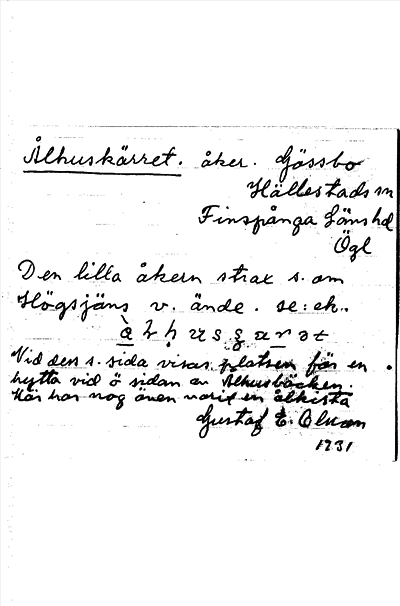 Ålhuskärret. åker. Gössbo
Hällestads sn
Finspånga läns hd
Ögl
Den lilla åkern strax s. om
Högsjöns v. ände. se: ek..
Vid den s. sida visas platsen för en
hytta vid ö sidan av Ålhusbäcken.
Här har nog även varit en ålkista
Gustaf E. Olsson
1931